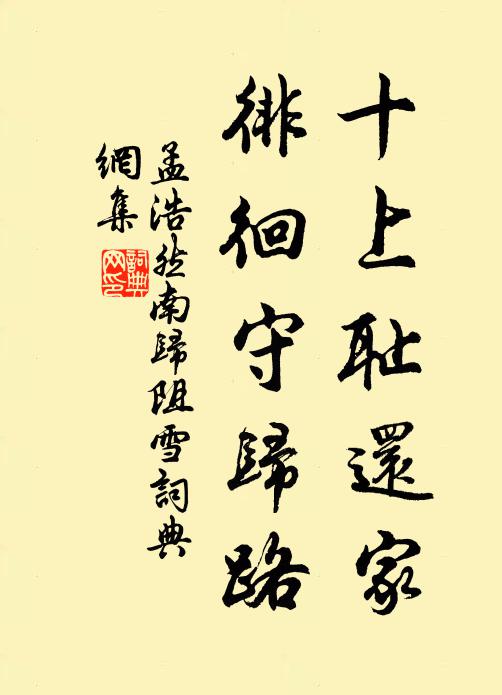 十上耻還家
徘徊守歸路
孟浩然南歸阻雪詞典
網集
詞典
网印